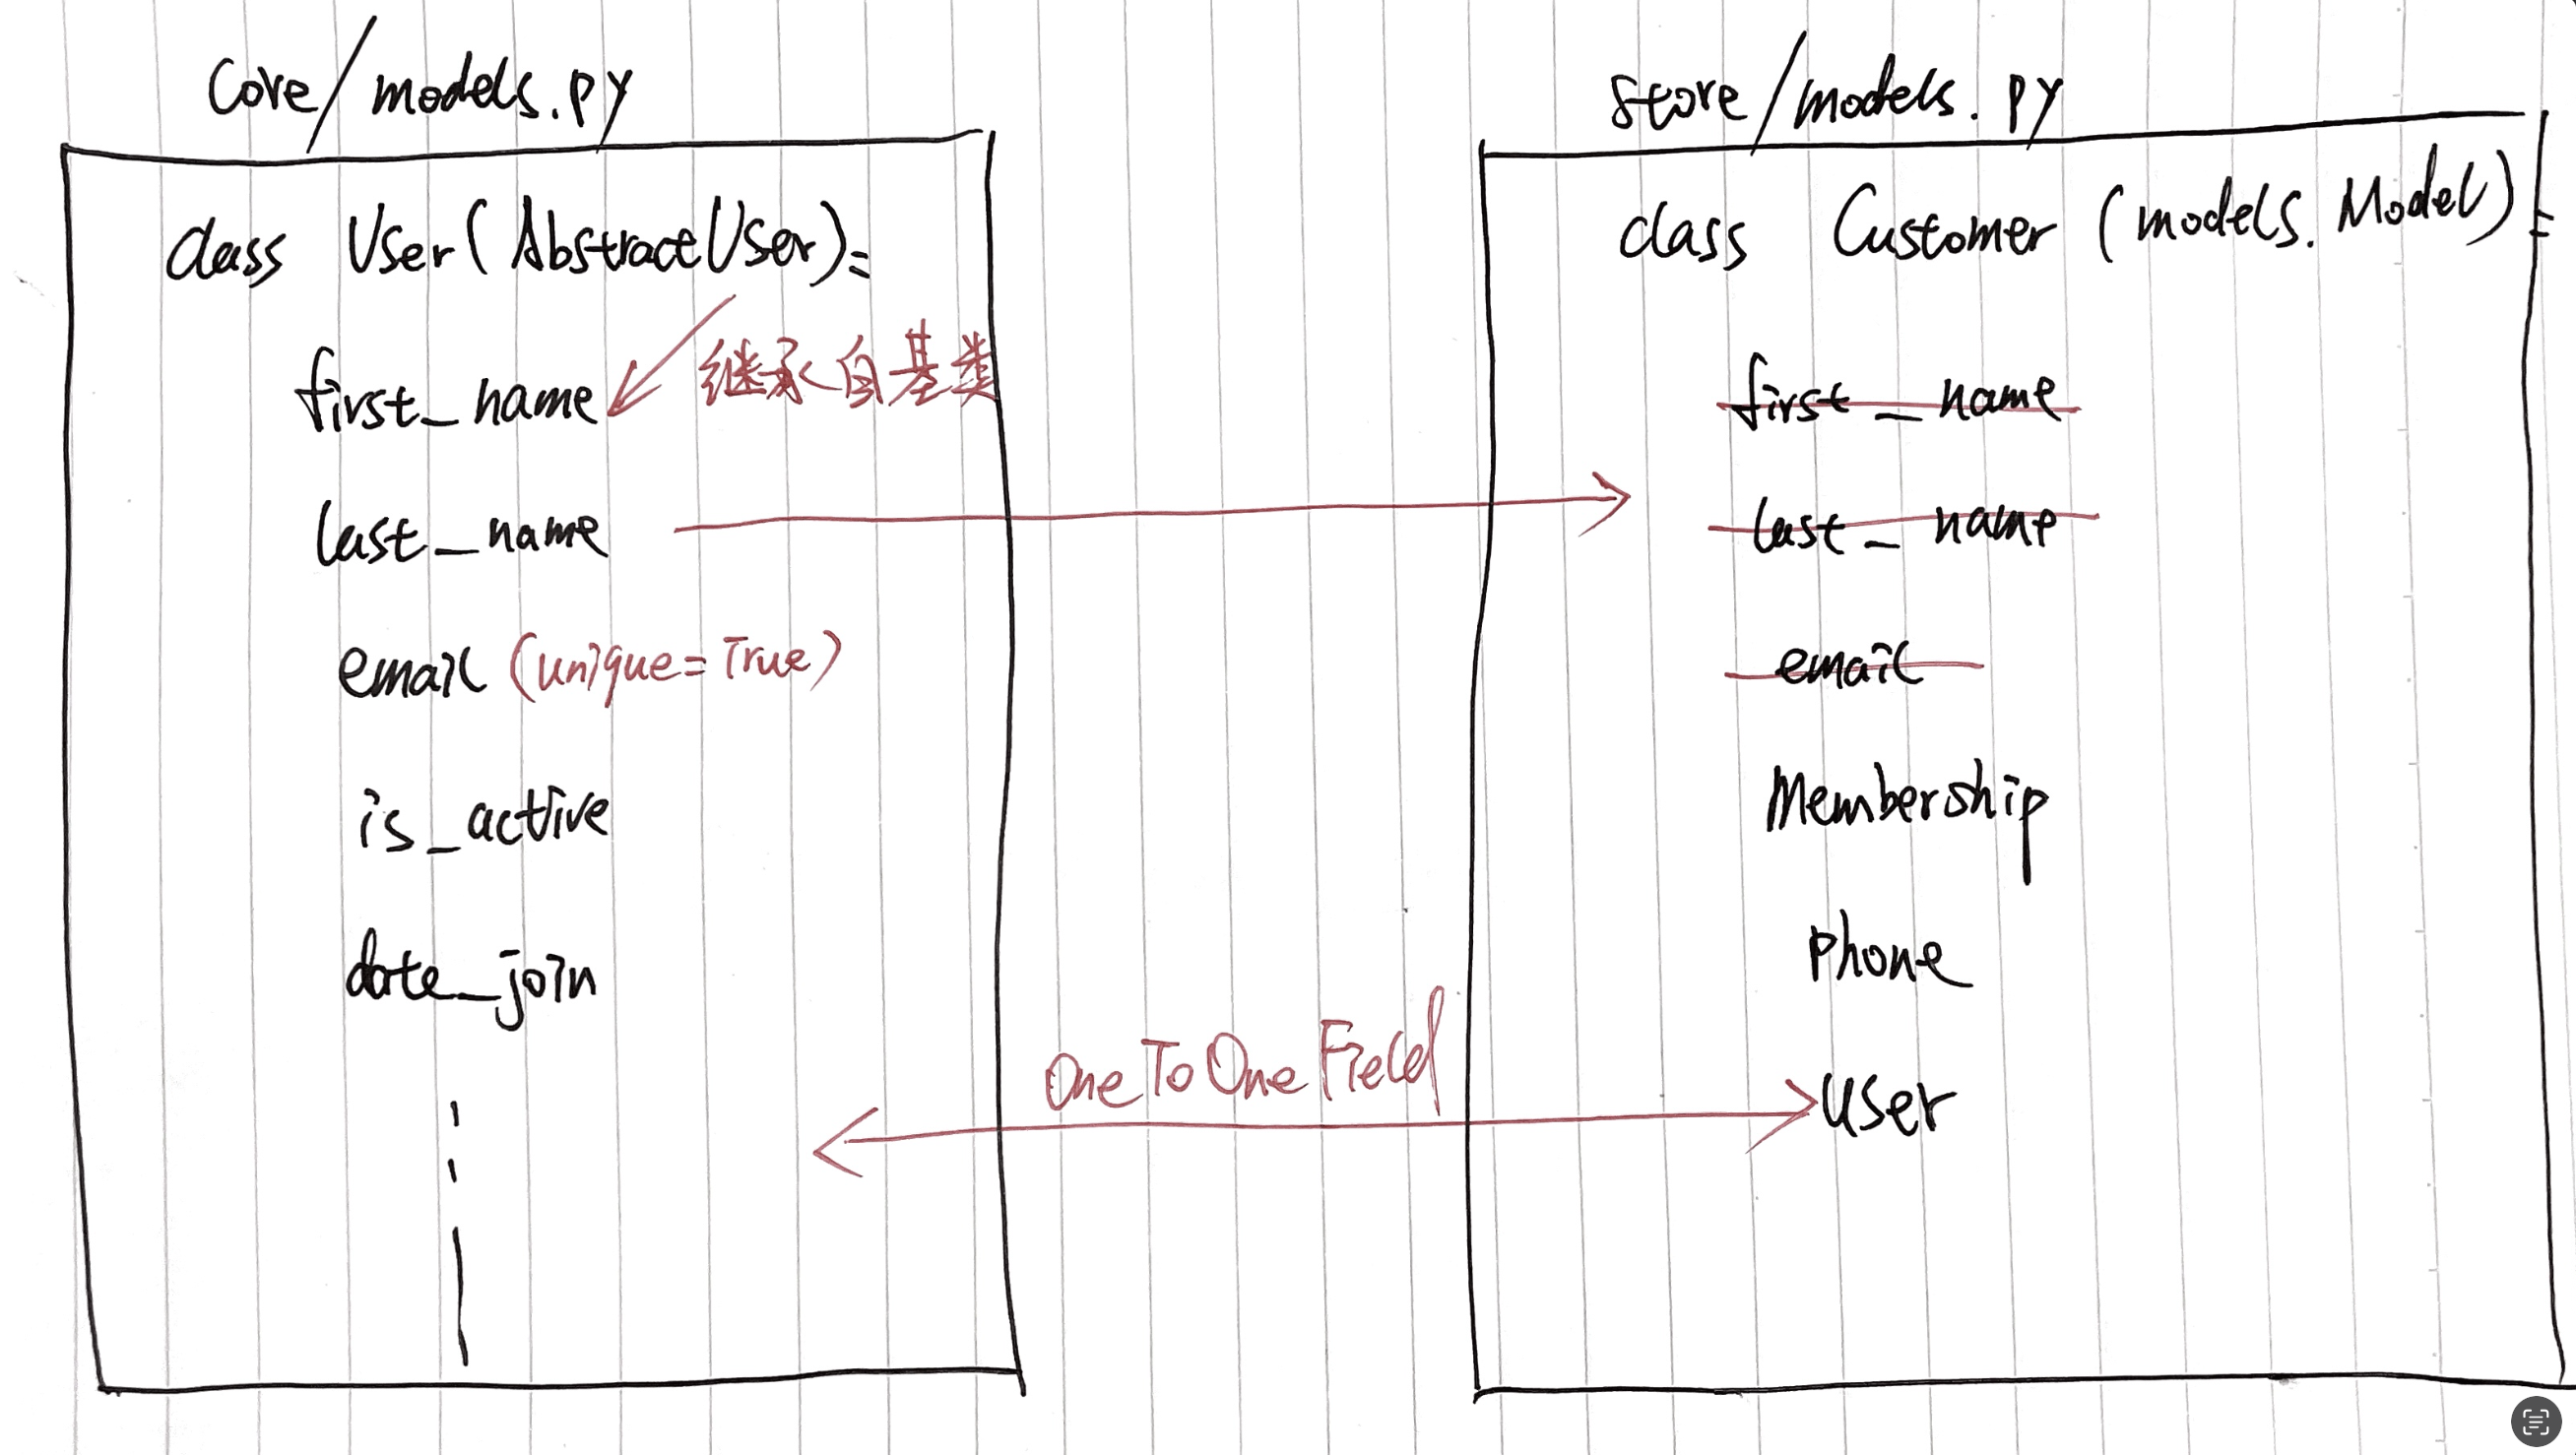 Core/models.py
class User(AbstractUser):
first_name
继承自基类
last_name
email (unique=True)
is_active
date_join
OneToOneField
store/models.py
class Customer (models.Model):
first_name
last_name
email
Membership
Phone
User